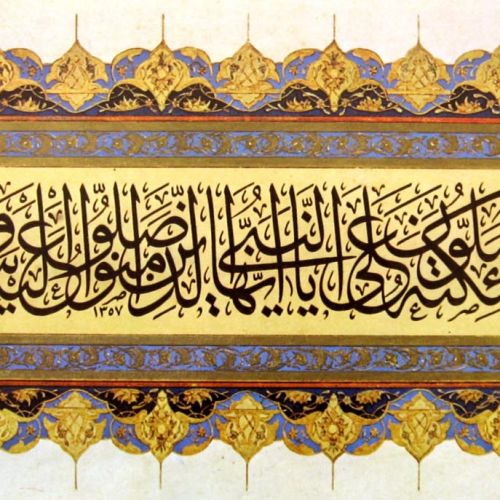 ئكته يصلون على النبي يا أيها الذين آمنوا صلوا عليه و
١٣٥٧